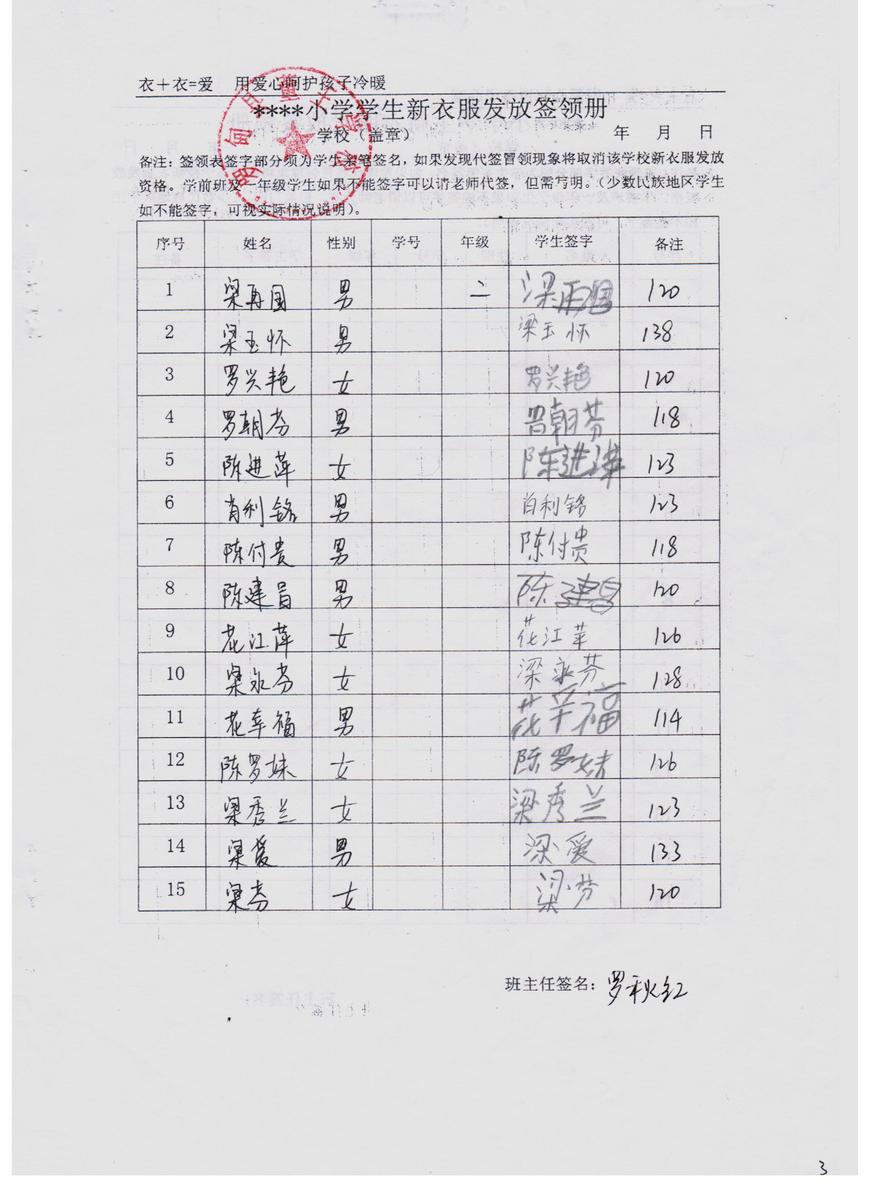 衣＋衣=爱 用爱心呵护孩子冷暖
****小学学生新衣服发放签领册
学校（盖章） 年 月 日
备注：签领表签字部分须为学生亲笔签名，如果发现代签冒领现象将取消该学校新衣服发放
资格。学前班及一年级学生如果不能签字可以请老师代签，但需写明。（少数民族地区学生
如不能签字，可视实际情况说明）。
序号 姓名 性别 学号 年级 学生签字 备注
1 梁再国 男 二 梁再国 120
2 梁玉怀 男 梁玉怀 138
3 罗兴艳 女 罗兴艳 120
4 罗朝芬 男 罗朝芬 118
5 陈进萍 女 陈进萍 123
6 肖利铭 男 肖利铭 123
7 陈付贵 男 陈付贵 118
8 陈建昌 男 陈建昌 120
9 花江萍 女 花江苹 126
10 梁永芬 女 梁永芬 128
11 花幸福 男 花辛福 114
12 陈罗妹 女 陈罗妹 126
13 梁秀兰 女 梁秀兰 123
14 梁爱 男 梁爱 133
15 梁芬 女 梁芬 120
班主任签名：罗秋红
3